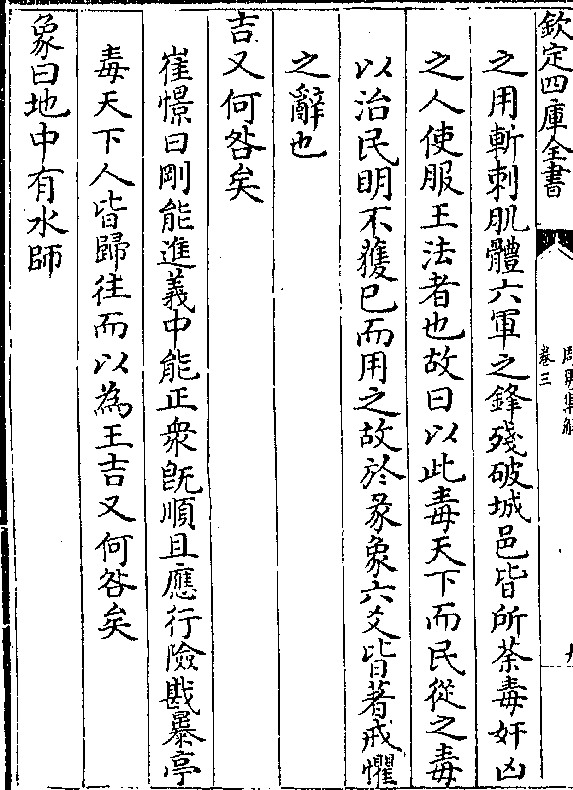 欽定四庫全書
周易集解
卷三
之用斬刺肌體六軍之鋒殘破城邑皆所荼毒奸凶
之人使服王法者也故曰以此毒天下而民從之毒
以治民明不獲已而用之故於彖象六爻皆著戒懼
之辭也
吉又何咎矣
崔憬曰剛能進義中能正衆既順且應行險戡暴亭
毒天下人皆歸往而以為王吉又何咎矣
象曰地中有水師